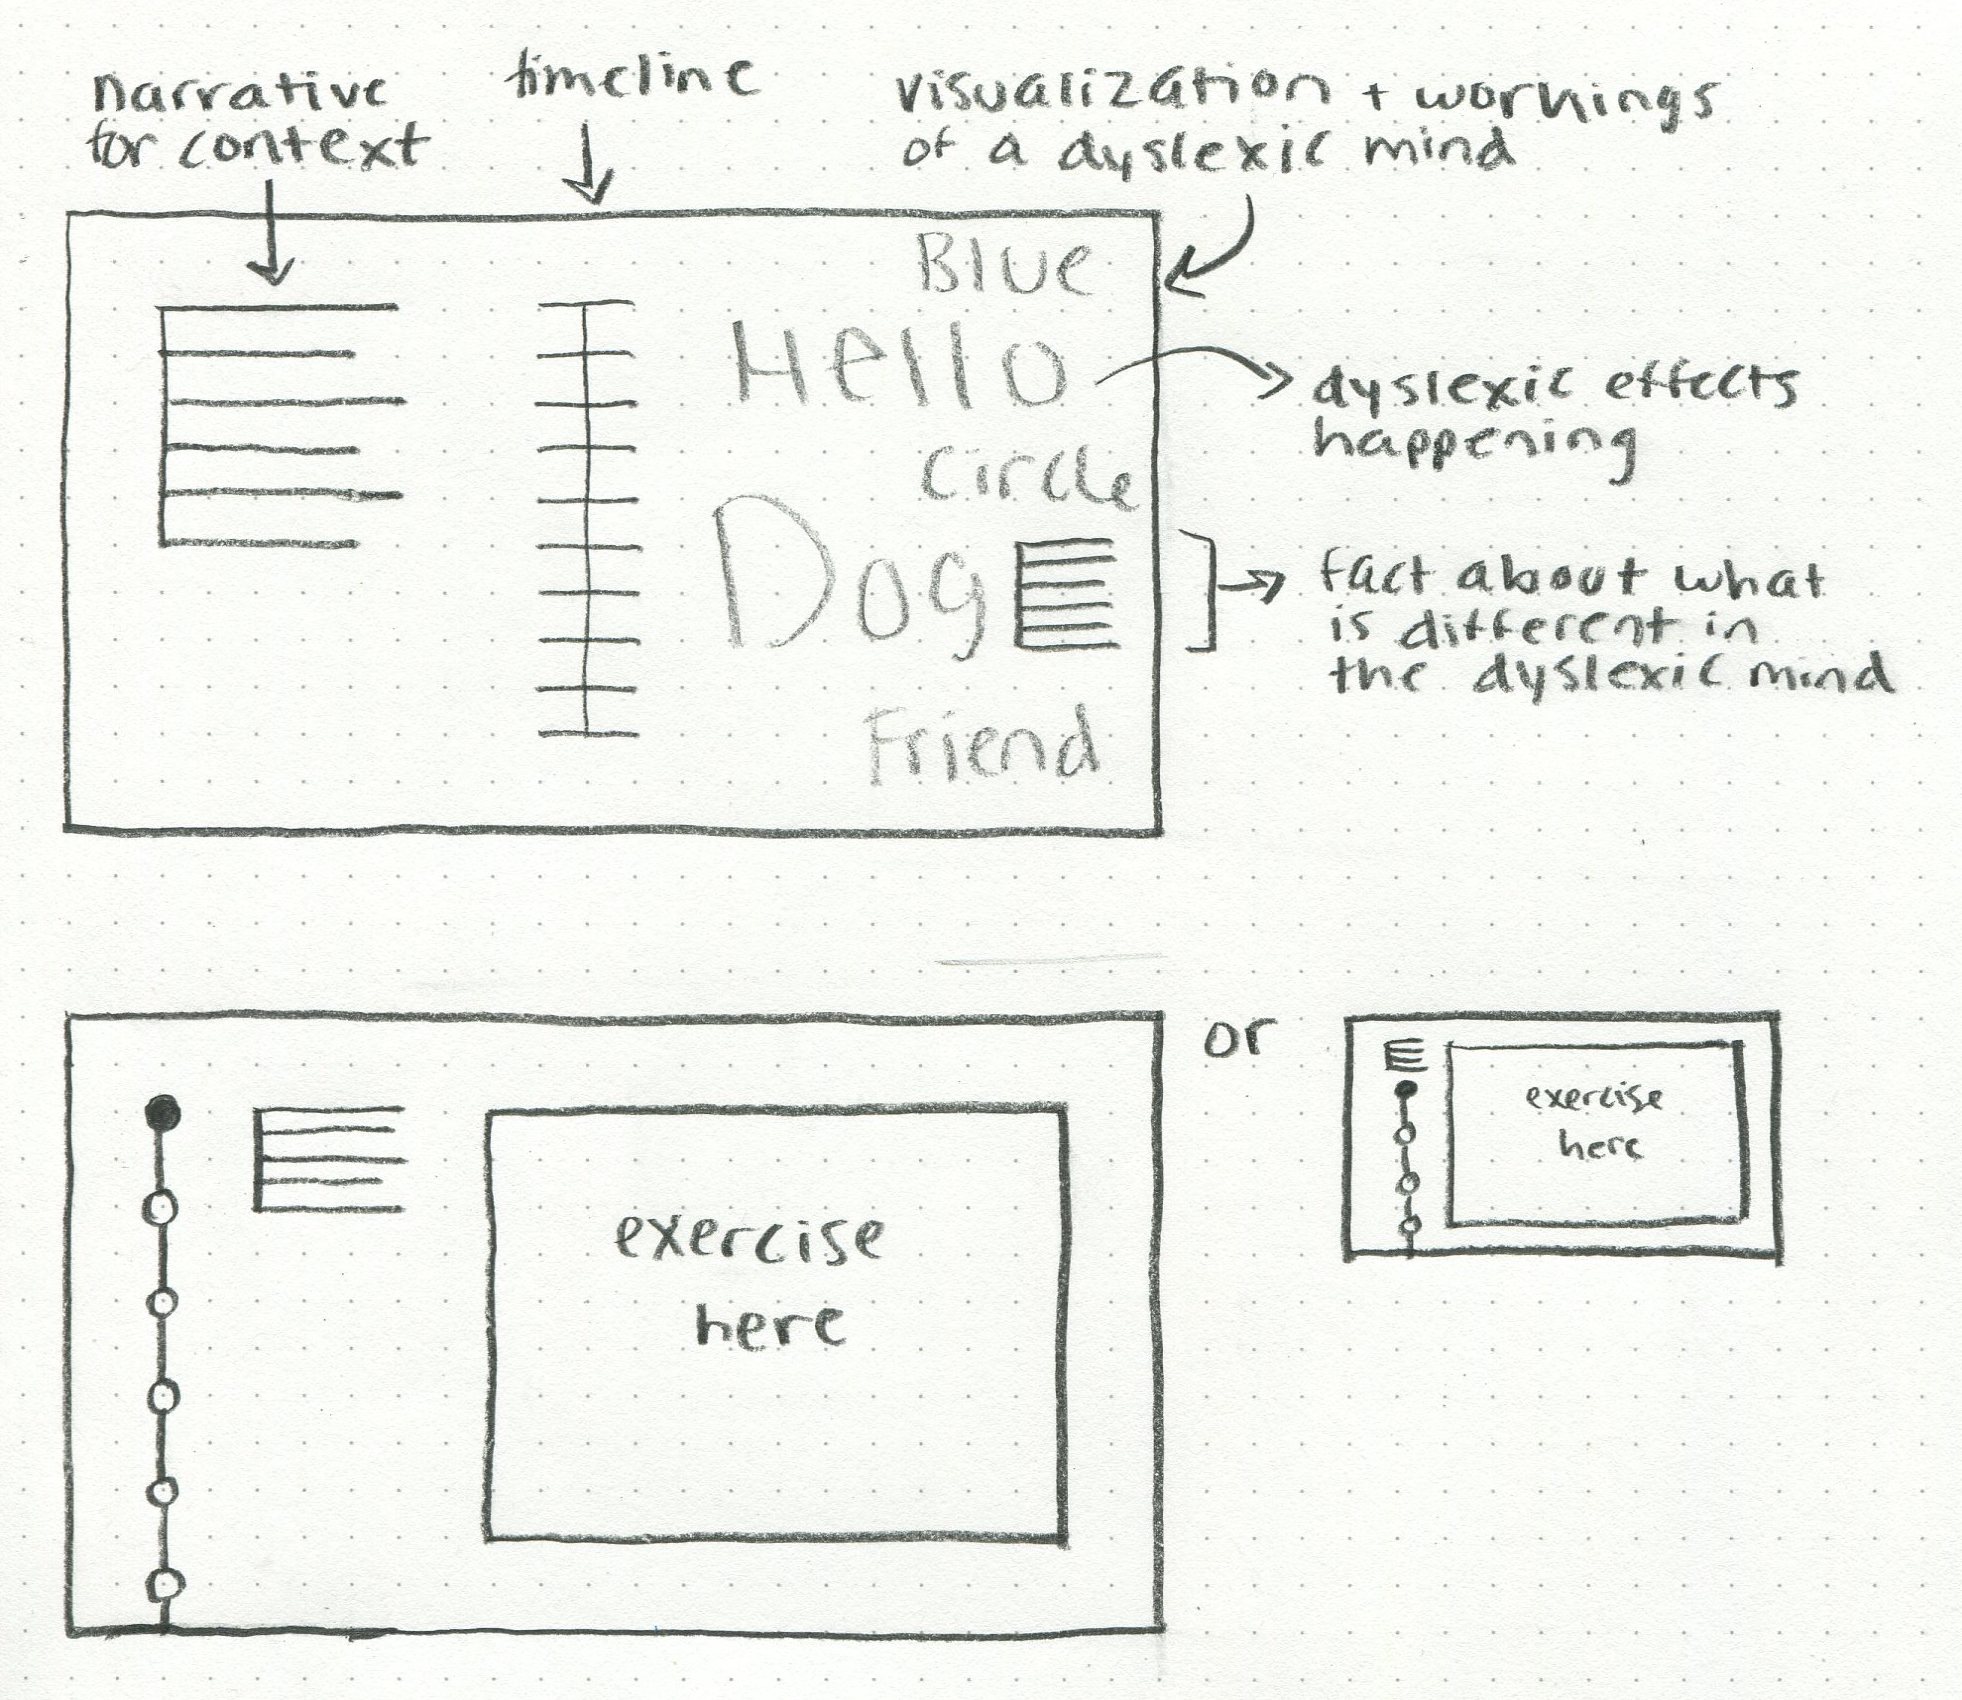 narrative
for context
timeline
visualization + workings
of a dyslexic mind
Blue
Hello
circle
Dog
Friend
dyslexic effects
happening
fact about what
is different in
the dyslexic mind
exercise
here
or
exercise
here